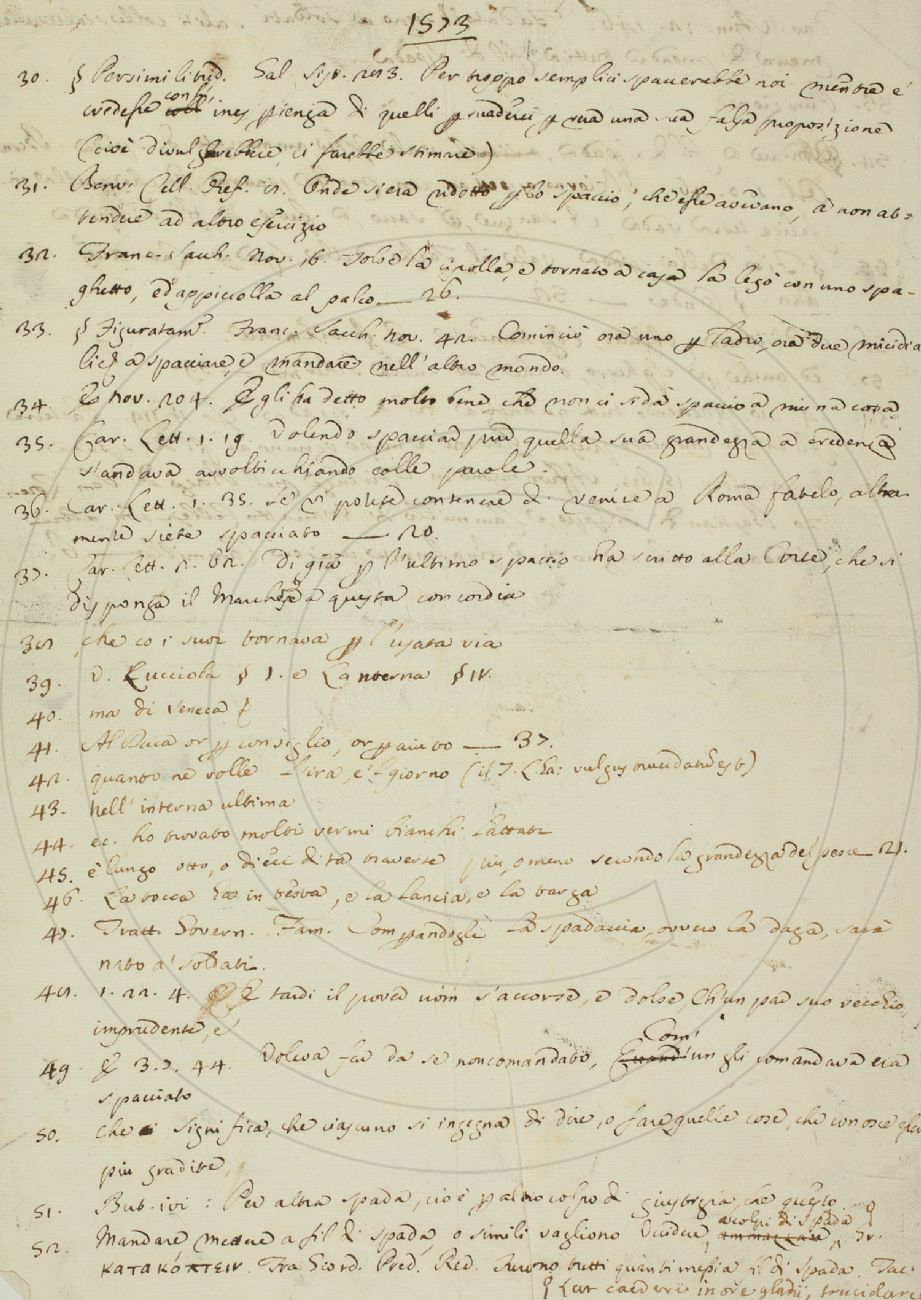 1573
30. § Persimilitud. Sal. Per troppo semplici spaccerebbe noi mentre e'
credesse con s' inesperienza di quelli persuaderci, per vera una sua falsa proposizione
(cioè divulgherebbe, ci farebbe stimare)
31. Benv. Cell. Onde si era ridotto per lo spaccio, che esse avevano, a non at-
tendere ad altro esercizio
32. Franc. Sacch. Nov. 16. Tolse la cipolla, e tornato a casa la legò con uno spa-
ghetto, ed appiccolla al palco — 26.
33. § Figuratam. Franc. Sacch. Nov. 42. Cominciò ora uno per ladro, ora due micidia-
li a spacciare, e mandare nell' altro mondo.
34. E nov. 204. Egli ha detto molto bene, che non ci si dà spaccio a niuna cosa
35. Car. Lett. 1. 19. Volendo spacciar pure quella sua grandezza a credenza
s'andava avvolticchiando colle parole.
36. Car. Lett. 1. 35. Se vi potete contenere di venire a Roma fatelo, altra-
mente siete spacciato — 20.
37. Car. Lett. Di già per l'ultimo spaccio ha scritto alla Corte, che si
disponga il Marchese a questa concordia
38 che co i suoi tornava per l'usata via
39. V. Lucciola § I. e Lanterna § IV.
40. ma di Seneca
41. Al Duca or per consiglio, or per aiuto — 37.
42. quanto ne volle l'ira, e 'l giorno (il T. Lha: vulgus trucidatu est)
43. nell' interna ultima
44. ec. ho trovato molti vermi bianchi lattati
45. è lungo otto, o dieci dita traverse più, o meno secondo la grandezza del pesce 21.
46. La rocca in testa, e la lancia, e la targa
47. Tratt. Govern. Fam. Comperandogli la spadaccia, ovvero la daga, sarà
nato a' soldati.
48. 1. 22. 4. E tardi il pover uom s'accorse, e dolse, Ch'un par suo vecchio,
imprudente, e'
49. E 3. 7. 44. Voleva far da se noncomandato, Com' un gli comandava era
spacciato
50. Che significa, che ciascuno si ingegna di dire, o fare quelle cose, che conosce
più gradite,
51. But. ivi: Per altra spada, cioè per altro colpo di giustizia che questo
52. Mandare, mettere a fil di spada, o simili vagliono Uccidere, a colpi di spada Gr.
κατακόπτειν. Fra Giord. Pred. Red. Furono tutti quanti messi a fil di spada. Tac.
Lat. caedere in ore gladii, trucidare